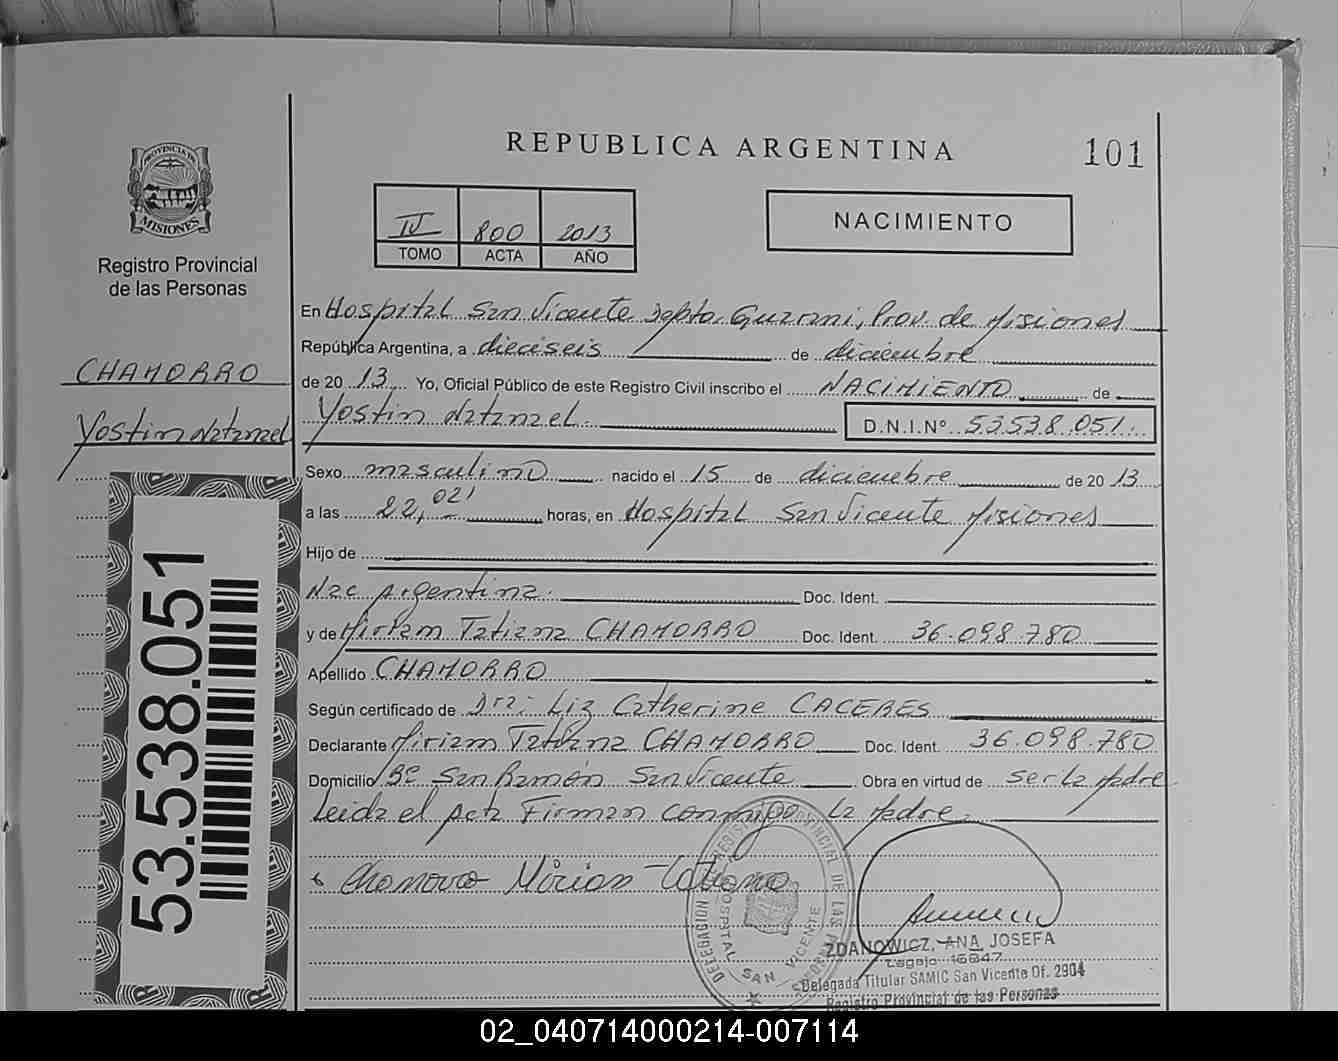 REPUBLICA ARGENTINA
101
PROVINCIA DE
MISIONES
Registro Provincial
de las Personas
IV 800 2013
TOMO ACTA AÑO
NACIMIENTO
En Hospital San Vicente Dpto. Guarani, Prov. de Misiones
República Argentina, a dieciseis de diciembre
CHAMORRO
de 20 13 Yo, Oficial Público de este Registro Civil inscribo el NACIMIENTO de
Yostin Natanael
Yostin Natanael D.N.I.Nº 53538.051
Sexo masculino nacido el 15 de diciembre de 20 13
a las 22,02' horas, en Hospital San Vicente Misiones
Hijo de
Nac Argentina. Doc. Ident.
y de Miriam Tatiana CHAMORRO Doc. Ident. 36.098.780
Apellido CHAMORRO
Según certificado de Dra: Liz Catherine CACERES
Declarante Miriam Tatiana CHAMORRO Doc. Ident. 36.098.780
Domicilio Bº San Ramón San Vicente Obra en virtud de ser la Madre
Leida el Acta Firman conmigo La Madre
Chamorro Mirian Tatiana
53.538.051
DELEGACION HOSPITAL SAN VICENTE
REGISTRO PROVINCIAL DE LAS PERSONAS
ZDANOWICZ, ANA JOSEFA
Legajo 16847
Delegada Titular SAMIC San Vicente Of. 2904
Registro Provincial de las Personas
02_040714000214-007114